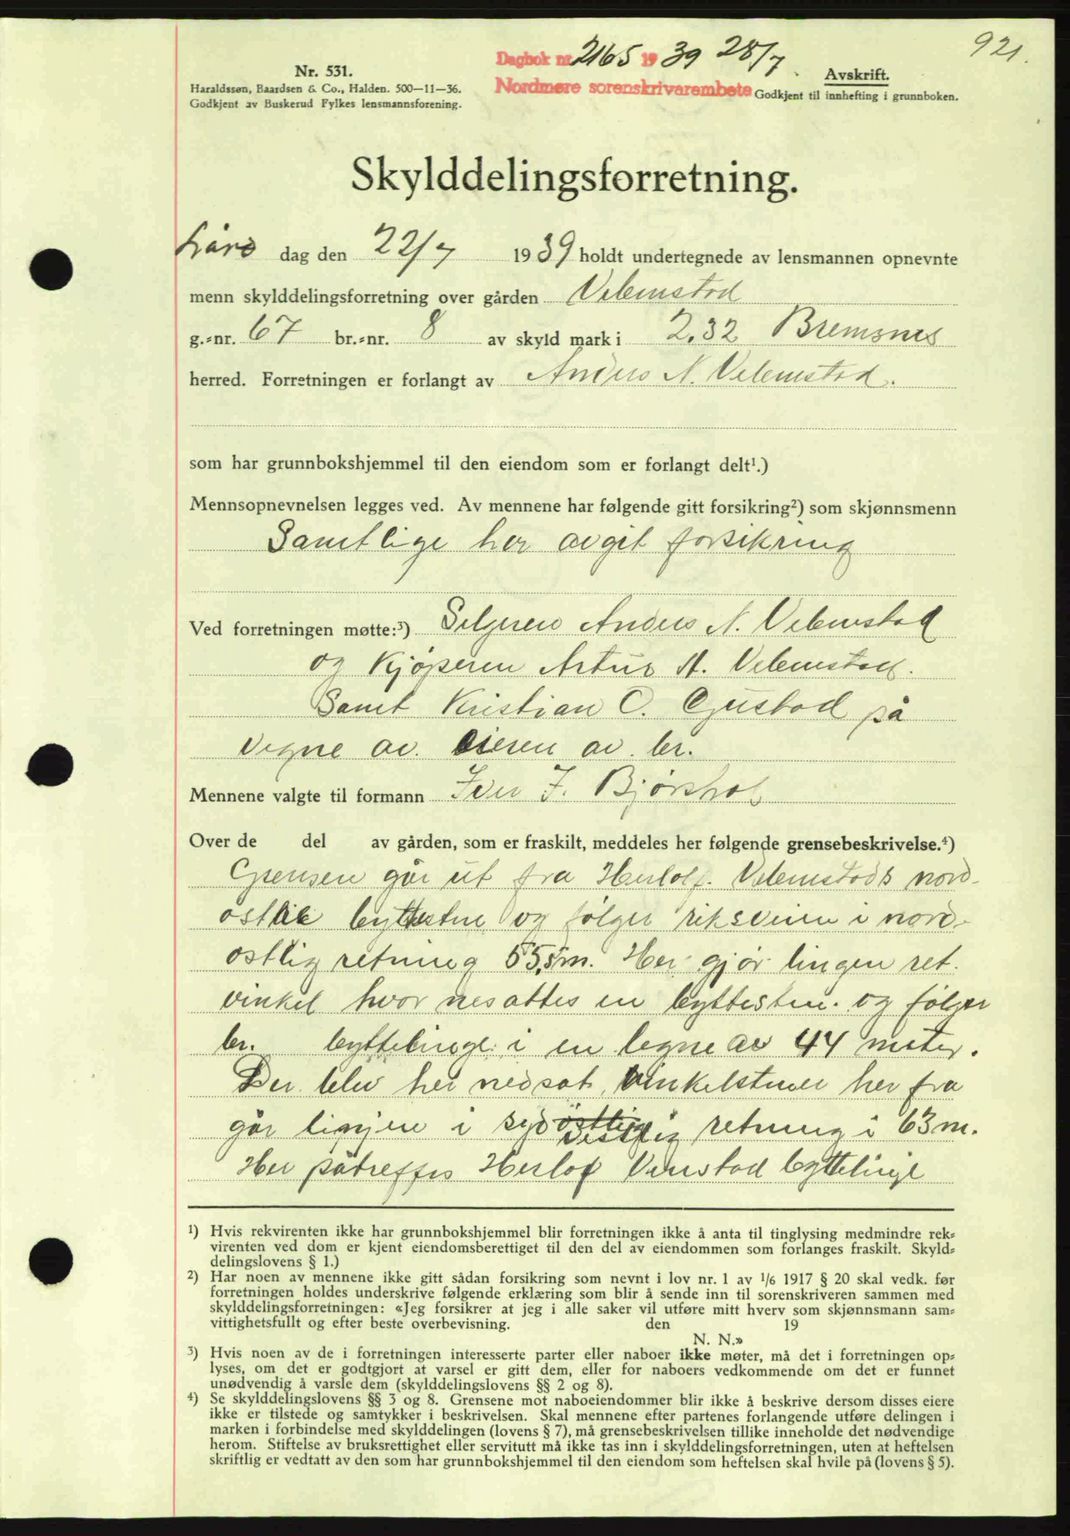 921.
Dagbok nr. 2165 1939 28/7.
Nordmøre sorenskrivarembete
Nr. 531.
Haraldssøn, Baardsen & Co., Halden. 500—11—36.
Godkjent av Buskerud Fylkes lensmannsforening.
Avskrift.
Godkjent til innhefting i grunnboken.
Skylddelingsforretning.
Lørdag den 22/7 1939 holdt undertegnede av lensmannen opnevnte
menn skylddelingsforretning over gården Vebenstad
g.-nr. 67 br.-nr. 8 av skyld mark i 2.32 Bremsnes
herred. Forretningen er forlangt av Anders N. Vebenstad.
som har grunnbokshjemmel til den eiendom som er forlangt delt¹.)
Mennsopnevnelsen legges ved. Av mennene har følgende gitt forsikring²) som skjønnsmenn
Samtlige her avgit forsikring
Ved forretningen møtte:³) Selgeren Anders N. Vebenstad
og Kjøperen Artur A. Vebenstad.
Samt Kristian O. Gustad på
vegne av eieren av br.
Mennene valgte til formann Iver J. Bjørshol
Over de del av gården, som er fraskilt, meddeles her følgende grensebeskrivelse.⁴)
Grensen går ut fra Herlof. Vebenstads nord-
ostlie byttestne og følger riksveien i nord-
ostlig retning 55,5m. Her gjør lingen ret.
vinkel hvor nesattes en byttesten. og følger
br. byttelinge i en legne av 44 meter.
Der blev her nedsat vinkelstnen her fra
går linjen i syd østlig vestlig retning i 63 m.
Her påtreffes Herlof Venstad byttelinje
¹) Hvis rekvirenten ikke har grunnbokshjemmel blir forretningen ikke å anta til tinglysing medmindre rek-
virenten ved dom er kjent eiendomsberettiget til den del av eiendommen som forlanges fraskilt. Skyld-
delingslovens § 1.)
²) Har noen av mennene ikke gitt sådan forsikring som nevnt i lov nr. 1 av ¹/₆ 1917 § 20 skal vedk. før
forretningen holdes underskrive følgende erklæring som blir å sende inn til sorenskriveren sammen med
skylddelingsforretningen: «Jeg forsikrer at jeg i alle saker vil utføre mitt hverv som skjønnsmann sam-
vittighetsfullt og efter beste overbevisning. den 19
N. N.»
³) Hvis noen av de i forretningen interesserte parter eller naboer ikke møter, må det i forretningen op-
lyses, om det er godtgjort at varsel er gitt dem, eller for naboers vedkommende om det er funnet
unødvendig å varsle dem (skylddelingslovens §§ 2 og 8).
⁴) Se skylddelingslovens §§ 3 og 8. Grensene mot naboeiendommer blir ikke å beskrive dersom disses eiere
ikke er tilstede og samtykker i beskrivelsen. Skal mennene efter partenes forlangende utføre delingen i
marken i forbindelse med skylddelingen (lovens § 7), må grensebeskrivelsen tillike inneholde det nødvendige
herom. Stiftelse av bruksrettighet eller servitutt må ikke tas inn i skylddelingsforretningen, uten at heftelsen
skriftlig er vedtatt av den som har grunnbokshjemmel til den eiendom som heftelsen skal hvile på (lovens § 5).